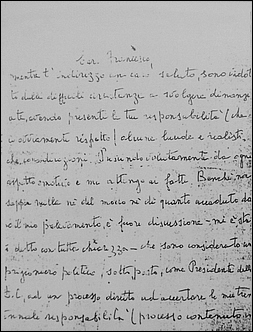 Caro Francesco,
mentre t'indirizzo un caro saluto, sono indot
to dalle difficili circostanze a svolgere dinanzi
a te, avendo presenti le tue responsabilità (che
io ovviamente rispetto) alcune lucide e realisti
che considerazioni. Prescindo volutamente da ogni
aspetto emotivo e mi attengo ai fatti. Benché non
sappia nulla né del modo né di quanto accaduto dopo
il mio prelevamento, è fuori discussione - mi è sta
to detto con tutta chiarezza - che sono considerato un
prigioniero politico, sottoposto, come Presidente della
D.C., ad un processo diretto ad accertare le mie tren
tennali responsabilità (processo contenuto in